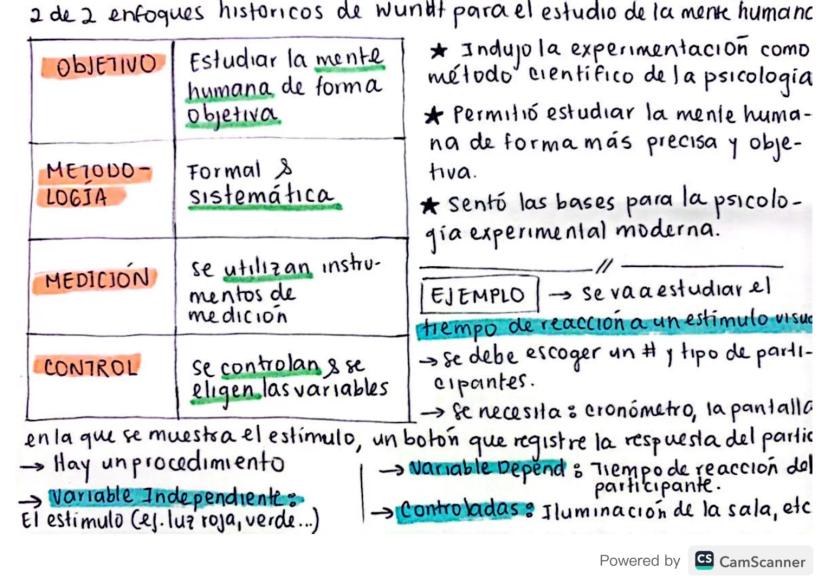 2 de 2 enfoques históricos de Wundt para el estudio de la mente humanc
OBJETIVO
Estudiar la mente
humana de forma
objetiva
METODO-
LOGÍA
Formal &
sistemática
MEDICIÓN
se utilizan instru-
mentos de
medición
CONTROL
se controlan & se
eligen las variables
★ Indujo la experimentación como
método científico de la psicología
★ Permitió estudiar la mente huma-
na de forma más precisa y obje-
tiva.
★ Sentó las bases para la psicolo-
gía experimental moderna.
EJEMPLO → se va a estudiar el
tiempo de reacción a un estímulo visuc
→ se debe escoger un # y tipo de parti-
cipantes.
→ Se necesita: cronómetro, la pantalla
en la que se muestra el estímulo, un botón que registre la respuesta del partic
→ Hay un procedimiento
→ Variable Independiente:
El estímulo (ej. luz roja, verde...)
→ Variable Depend: Tiempo de reacción del
participante.
→ Controladas: Iluminación de la sala, etc
Powered by CS CamScanner